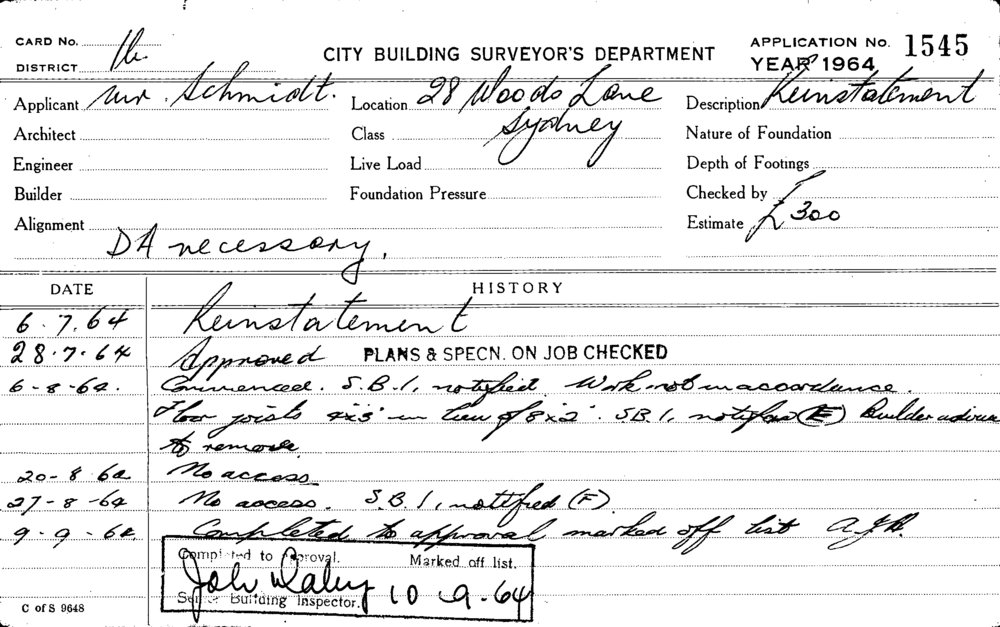 CARD No.
DISTRICT
CITY BUILDING SURVEYOR'S DEPARTMENT
APPLICATION No. 1545
YEAR 1964
Applicant Mr. Schmidt. Location 28 Woods Lane Description Reinstatement
Sydney
Architect Class Nature of Foundation
Engineer Live Load Depth of Footings
Builder Foundation Pressure Checked by
Alignment Estimate £300
DA necessary.
DATE HISTORY
6.7.64 Reinstatement
28.7.64 Approved PLANS & SPECN. ON JOB CHECKED
6-8-64. Commenced. S.B.I. notified. Work not in accordance.
Floor joists 4"x3" in lieu of 8"x2". S.B.I. notified (E) Builder
to remove.
20-8-64 No access.
27-8-64 No access. S.B.I. notified (F).
9-9-64 Completed to approval marked off list
Completed to Approval. Marked off list.
10-9-64
Senior Building Inspector.
C of S 9648